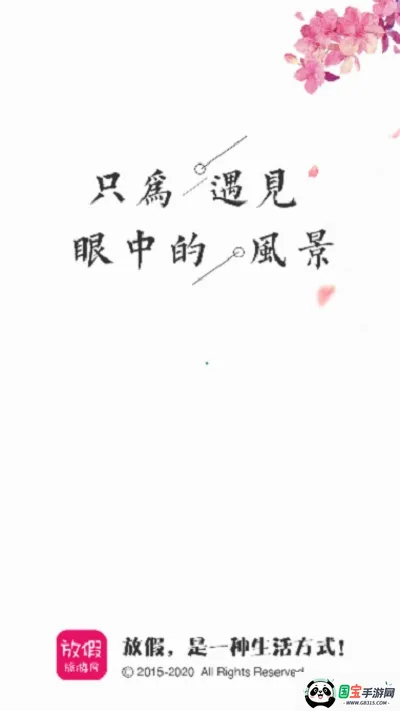 只為遇見
眼中的風景
放假
旅游网
放假，是一种生活方式！
© 2015-2020 All Rights Reserved
国宝手游网
WWW.GB313.COM